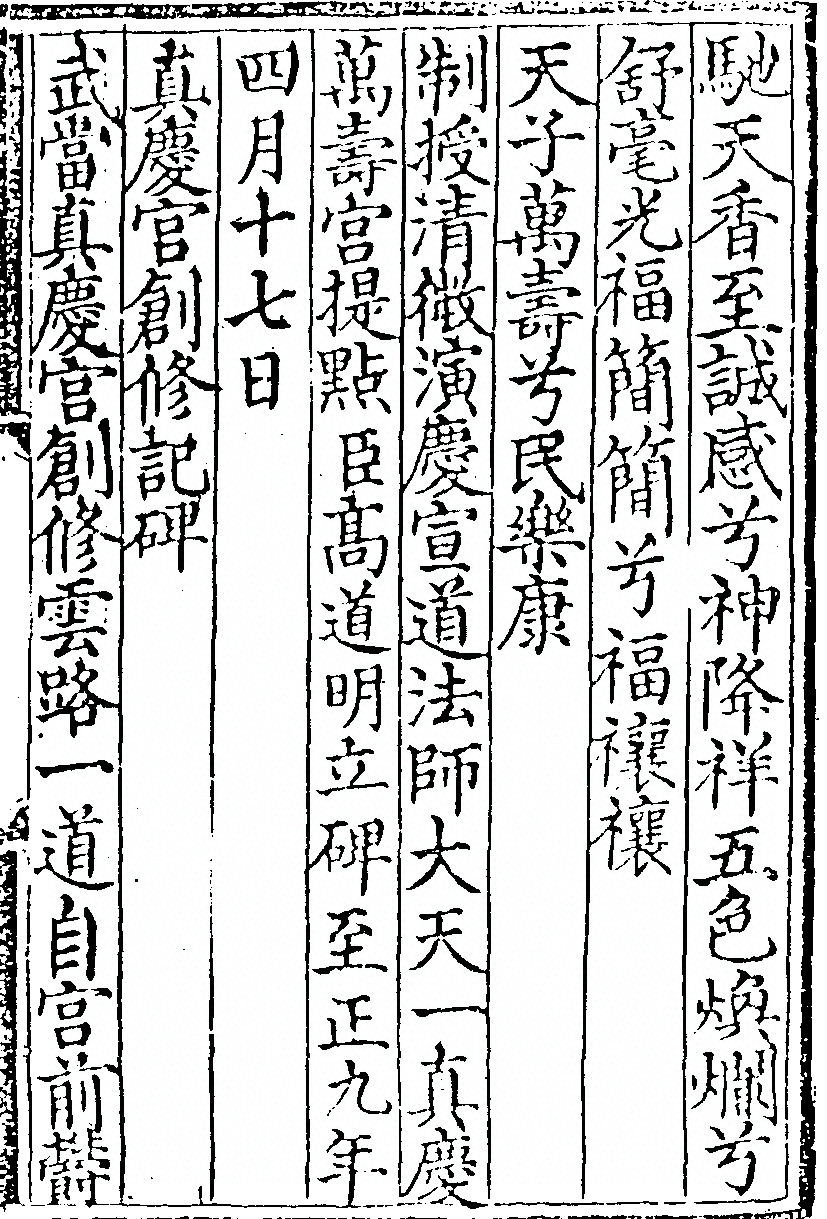 馳天香至誠感兮神降祥五色煥爛兮
舒毫光福簡簡兮福禳禳
天子萬壽兮民樂康
制授清微演慶宣道法師大天一真慶
萬壽宮提點臣髙道明立碑至正九年
四月十七日
真慶宮創修記碑
武當真慶宮創修雲路一道自宮前